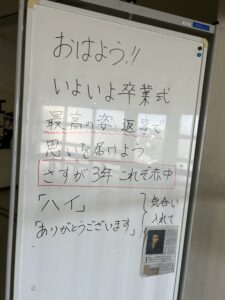 おはよう!!
いよいよ卒業式
最高の姿・返事で
思いを届けよう
さすが3年 これぞ赤中
「ハイ」
「ありがとうございます」
気合い
入れて